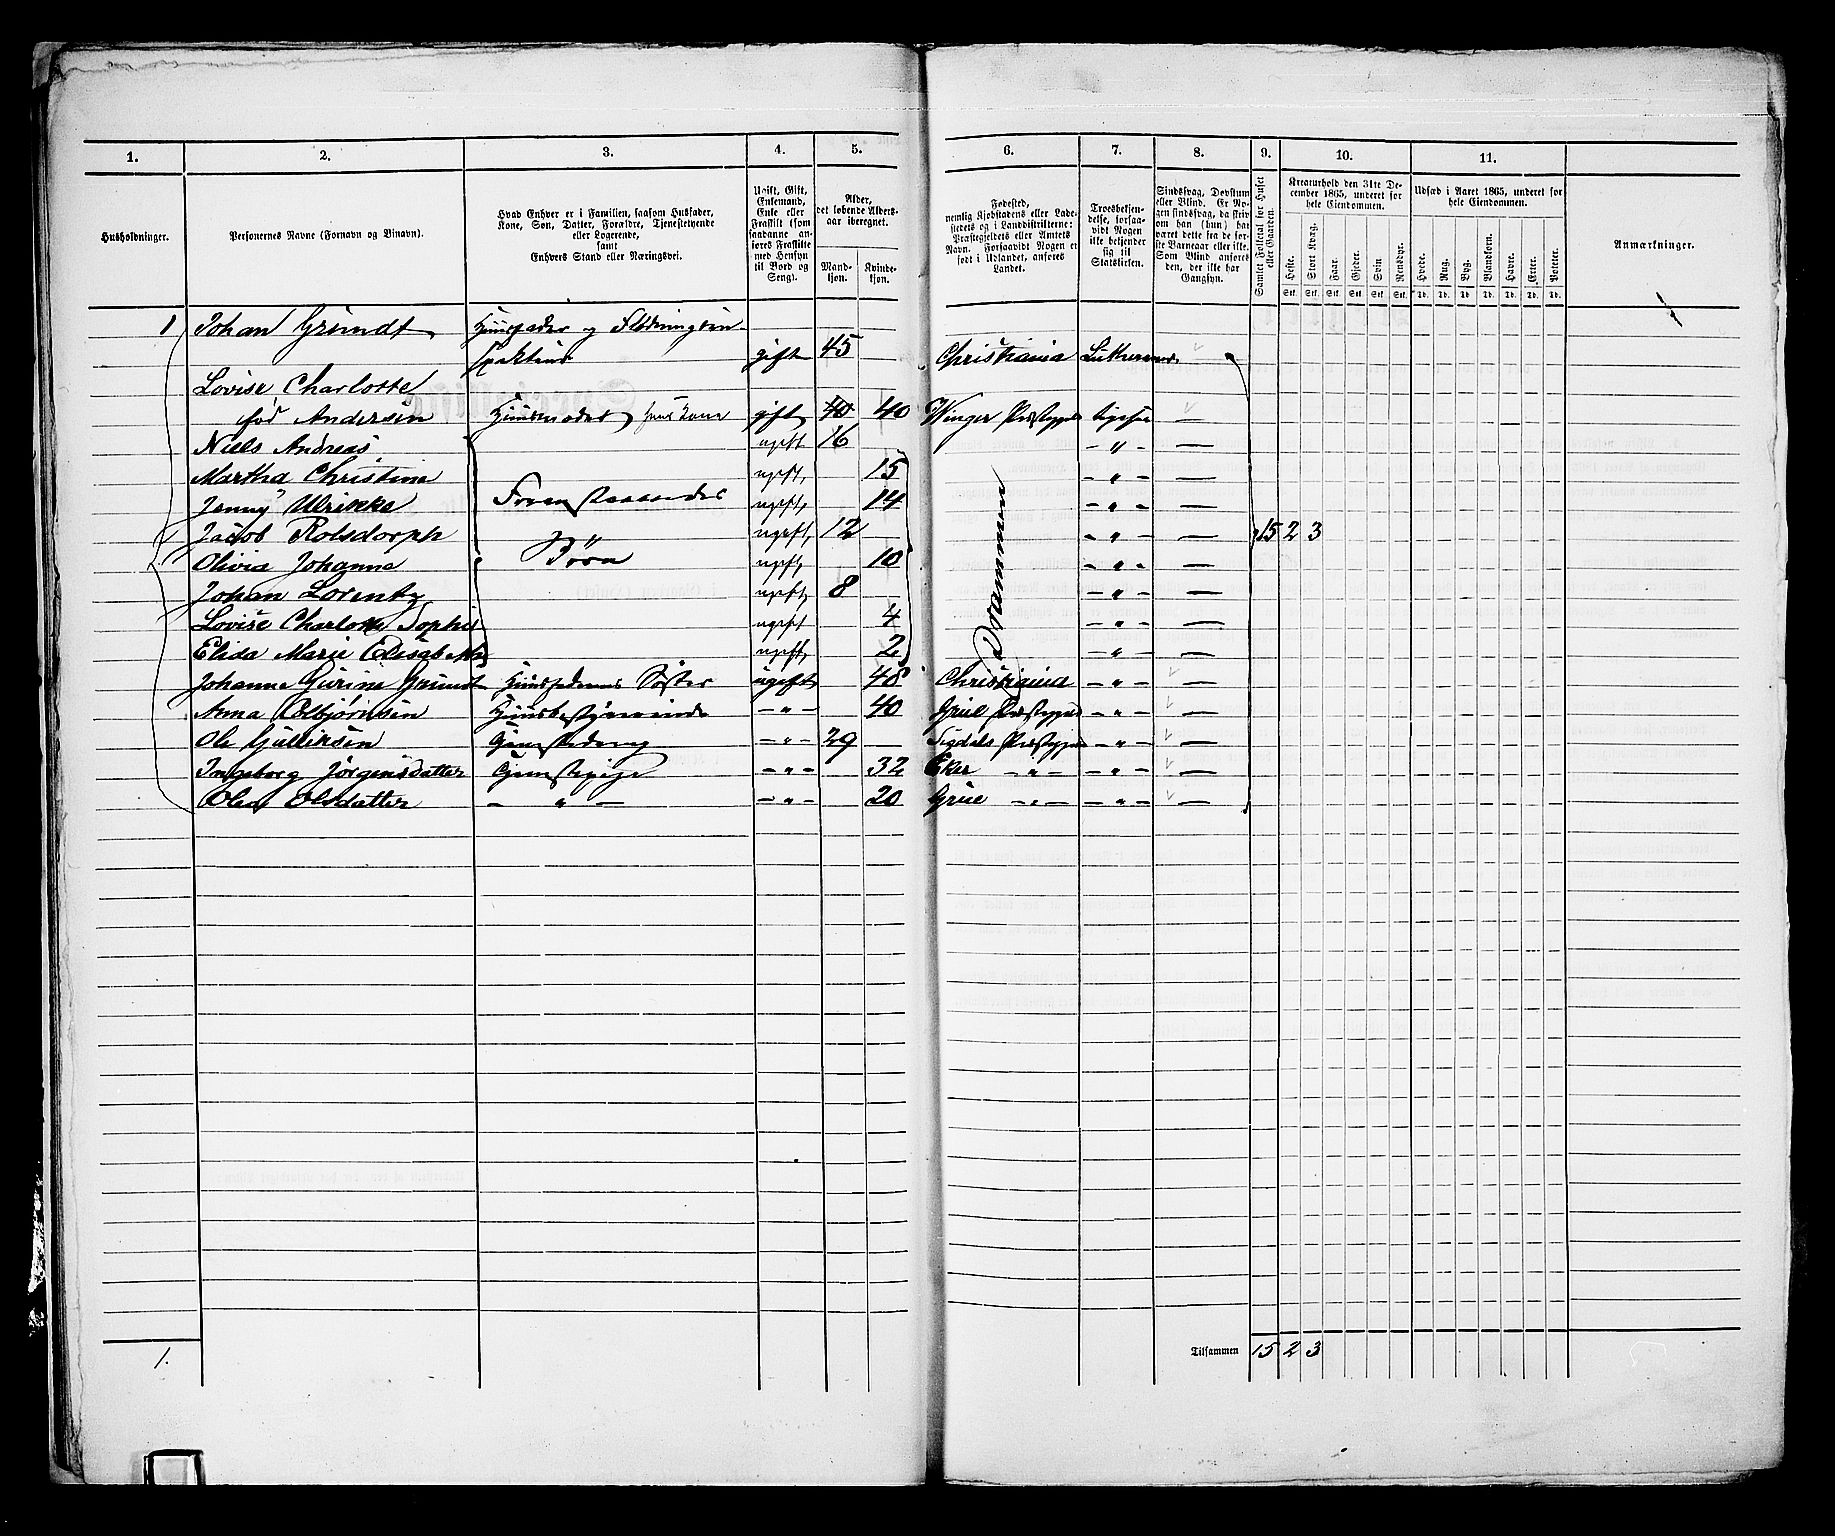 1. 2. 3. 4. 5. 6. 7. 8. 9. 10. 11.
Husholdninger.
Personernes Navne (Fornavn og Tilnavn).
Hvad Enhver er i Familien, saasom Husfader,
Kone, Søn, Datter, Forældre, Tjenestetyende
eller Logerende,
samt
Enhvers Stand eller Næringsvei.
Ugift, Gift,
Enkemand,
Enke eller
Fraskilt (som
saadanne an-
føres Fraskilte
med Hensyn
til Bord og
Seng).
Alder,
det løbende Alders-
aar iberegnet.
Mand-
kjøn.
Kvinde-
kjøn.
Fødested,
nemlig Kjøbstadens eller Lade-
stedets og i Landdistrikterne:
Præstegjeldets eller Amtets
Navn. Forsaavidt Nogen er
født i Udlandet, anføres
Landet.
Troesbekjen-
delse, forsaa-
vidt Nogen
ikke bekjender
sig til
Statskirken.
Sindssvag, Døvstum
eller Blind. Er No-
gen sindssvag, da skriv
om han (hun) har
været dette fra de før-
ste Barneaar eller ikke.
Som Blind anføres
den, der ikke har
Gangsyn.
Samlet Folketal for Huset
eller Gaarden.
Kreaturhold den 31te De-
cember 1865, underet for
hele Eiendommen.
Heste. Stort Kvæg. Faar. Gjeder. Svin. Rensdyr.
Stk. Stk. Stk. Stk. Stk. Stk.
Udsæd i Aaret 1865, underet for
hele Eiendommen.
Hvede. Rug. Byg. Blandkorn. Havre. Erter. Poteter.
Td. Td. Td. Td. Td. Td. Td.
Anmærkninger.
1 Johan Grundt Huusfader og Flødningsin
spekteur gift 45 Christiania Lutheraner —
Lovise Charlotte
fød Andersen Huusmoder, hans Kone gift 40 40 Winger Præstegjeld ligesaa —
Niels Andreas ugift 16 — " — —
Martha Christine ugift, 15 — " — —
Jenny Ulrikke Foranstaaendes ugift, 14 — " — —
Jacob Rolsdorph ugift, 12 — " — — 15 2 3
Olivia Johanne Børn ugift, 10 — " — —
Johan Lorentz ugift, 8 — " — —
Lovise Charlotte Sophie ugift 4 — " — —
Elida Marie Elisabeth ugift, 2 — " — —
Drammen
Johanne Gurine Grundt Huusfaderens Søster ugift 48 Christiania — " — —
Anna Esbjørnsen Huusbestyrerinde — " — 40 Grue Præstegjeld — " — —
Ole Gulliksen Gjenstedreng — " — 29 — Sigdals Præstegjeld — " — —
Ingeborg Jørgensdatter Gjenstepige — " — 32 Eker — " — — " — —
Olea Olsdatter — " — — " — 20 Grue — " — — " — —
1.
Tilsammen 15 2 3